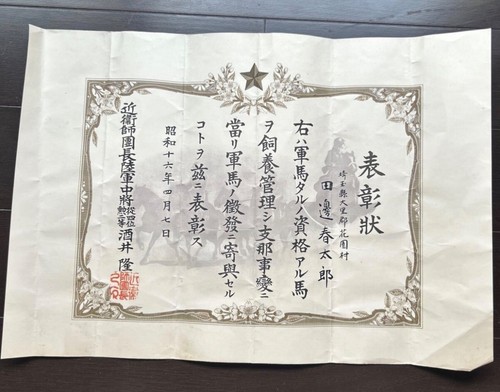 表彰状
埼玉縣大里郡花園村
田邊春太郎
右ハ軍馬タルノ資格アル馬
ヲ飼養管理シ支那事變ニ
當リ軍馬ノ徴發ニ寄與セル
コトヲ茲ニ表彰ス
昭和十六年四月七日
近衞師團長陸軍中將從四位勲二等酒井隆